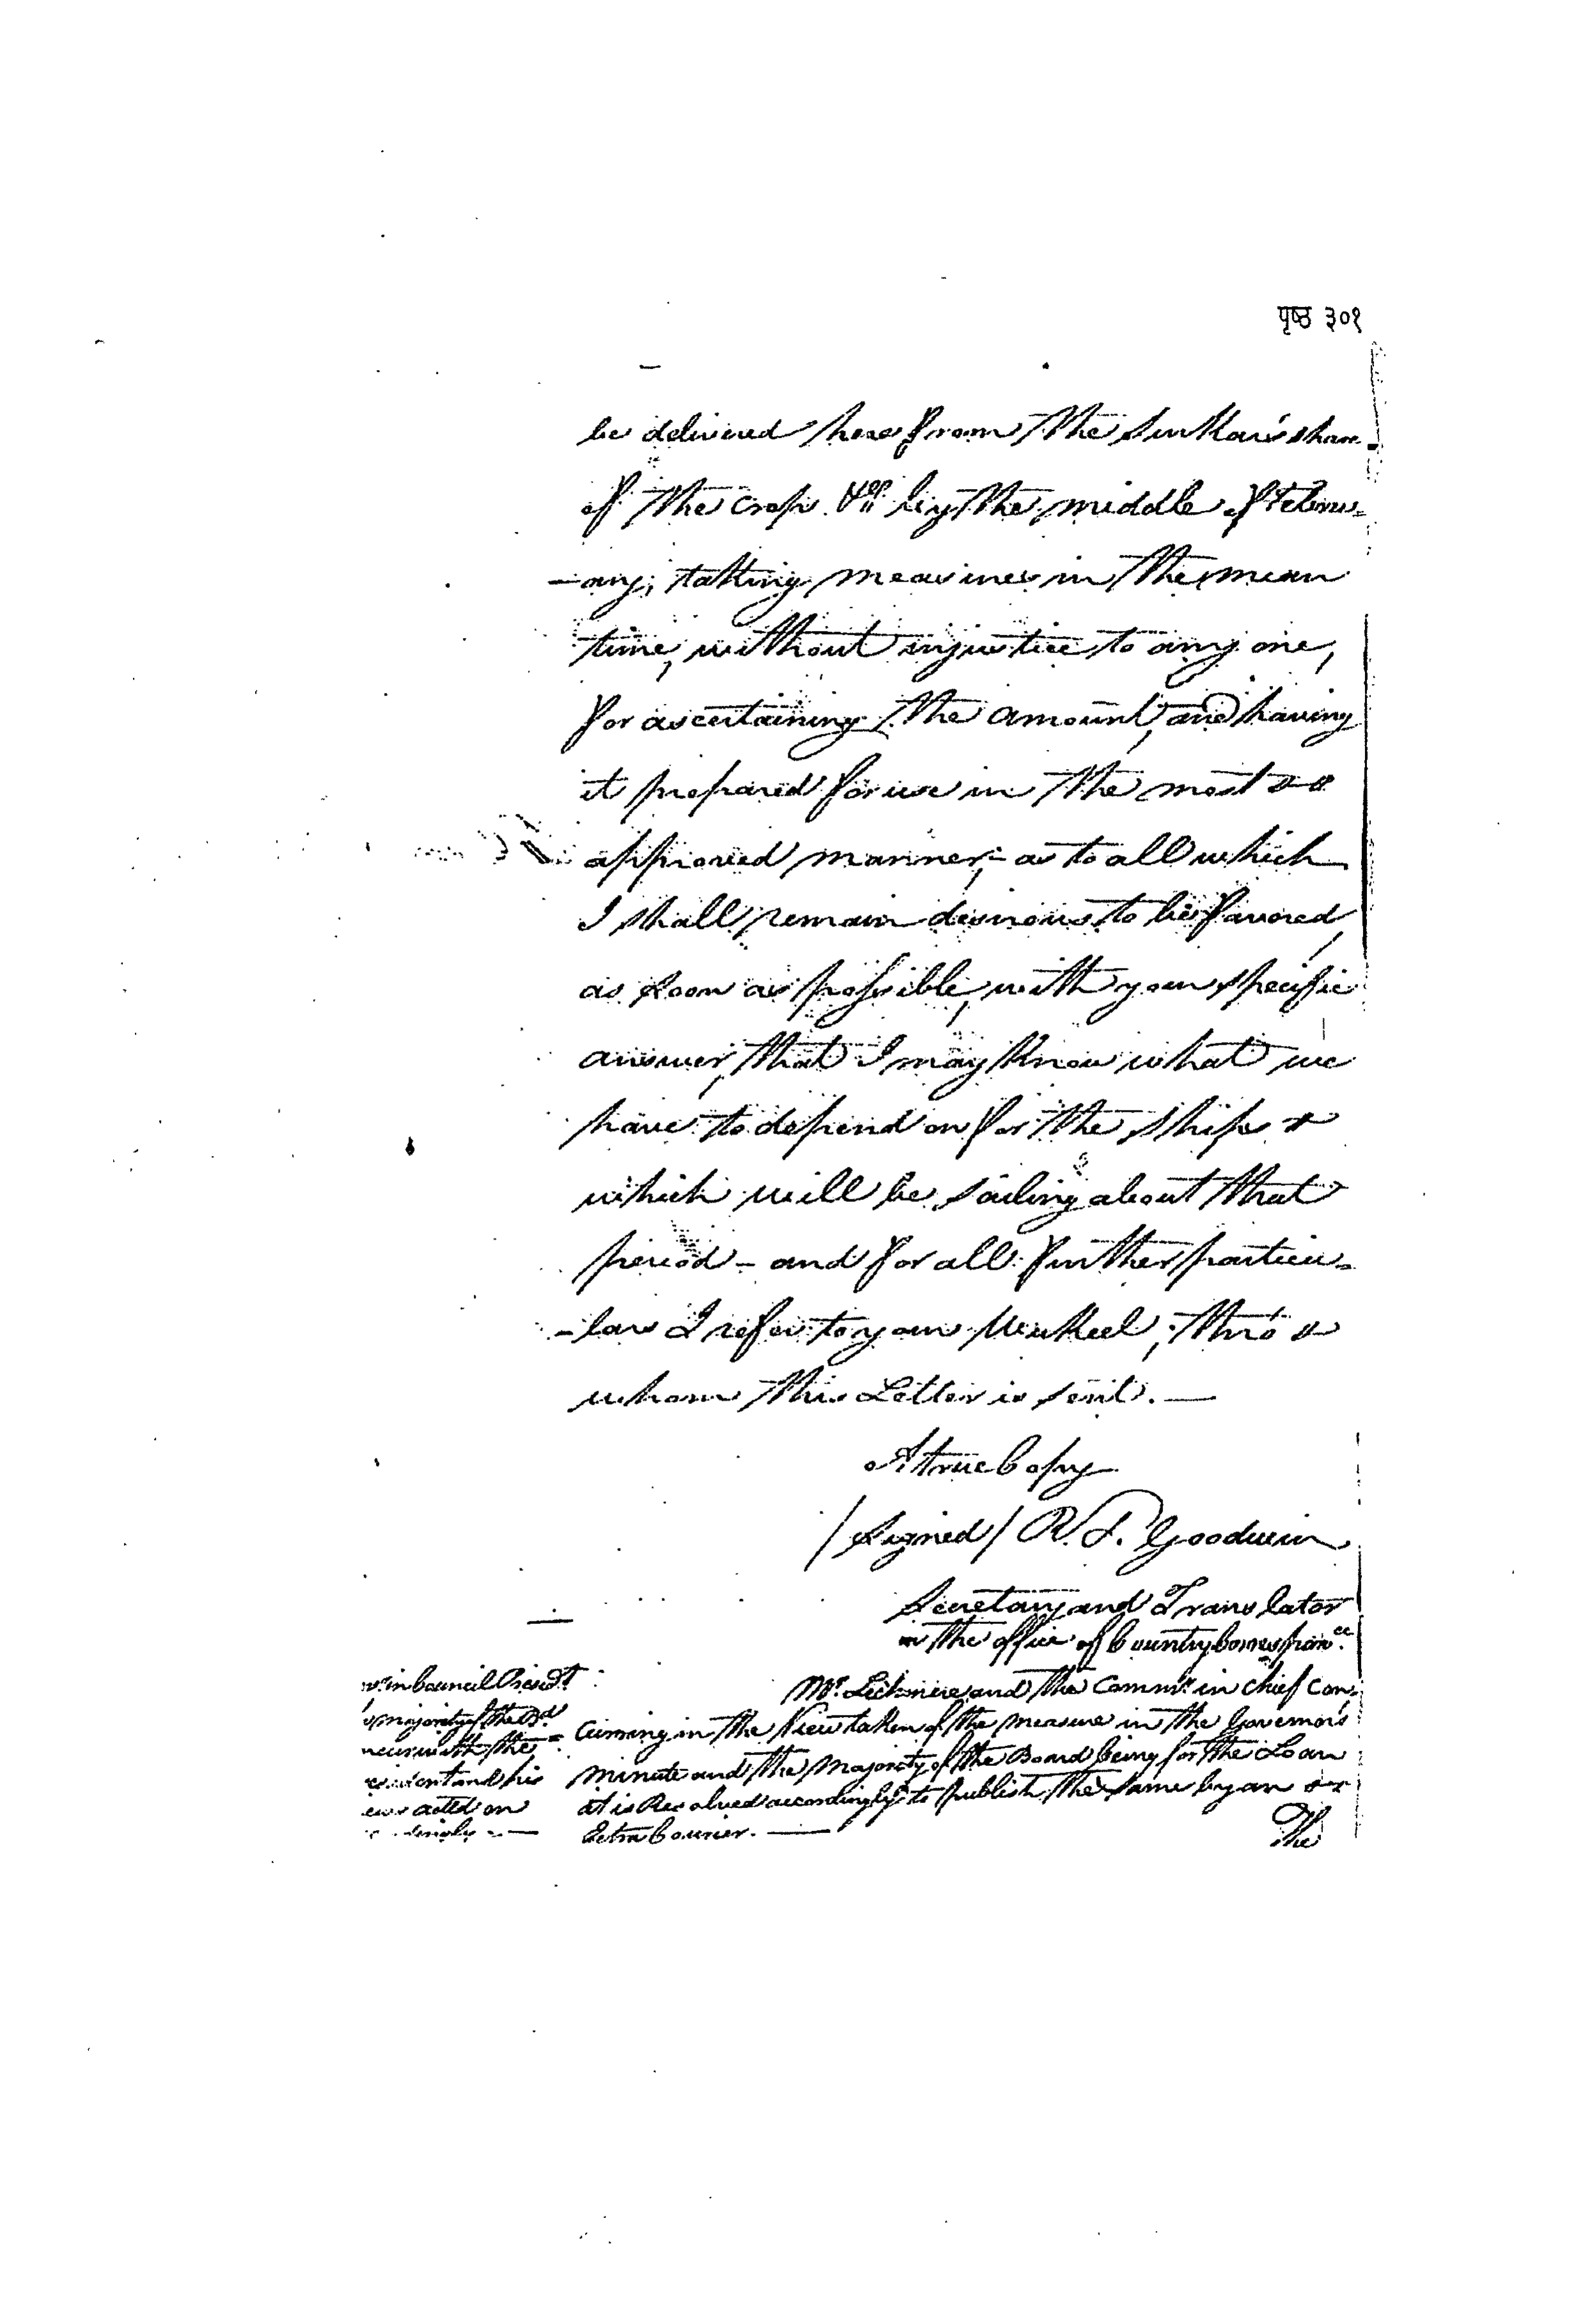 पृष्ठ ३०१
be delivered here from the Surkar's share
of the crop &ca by the middle of Febru=
-ary, taking measures in the mean
time, without injustice to any one,
for ascertaining the amount, and having
it prepared for use in the most
approved manner; as to all which
I shall remain desirous to be favored,
as soon as possible, with your specific
answer, that I may know what we
have to depend on for the Ships
which will be sailing about that
period - and for all further particu=
-lars I refer to your Vakeel, thro'
whom this Letter is sent. —
A true Copy
/Signed/ R. T. Goodwin
Secretary and Translator
in the office of Country Correspon.ce
Mr. Lechmere and the Commr. in Chief Con=
=curring in the View taken of the measure in the Governor's
minute and the Majority of the Board being for the Loan
it is Resolved accordingly to publish the same by an
Extra Courier. —
The
in Council Presidt.
majority of the Bd.
with the
and his
acted on